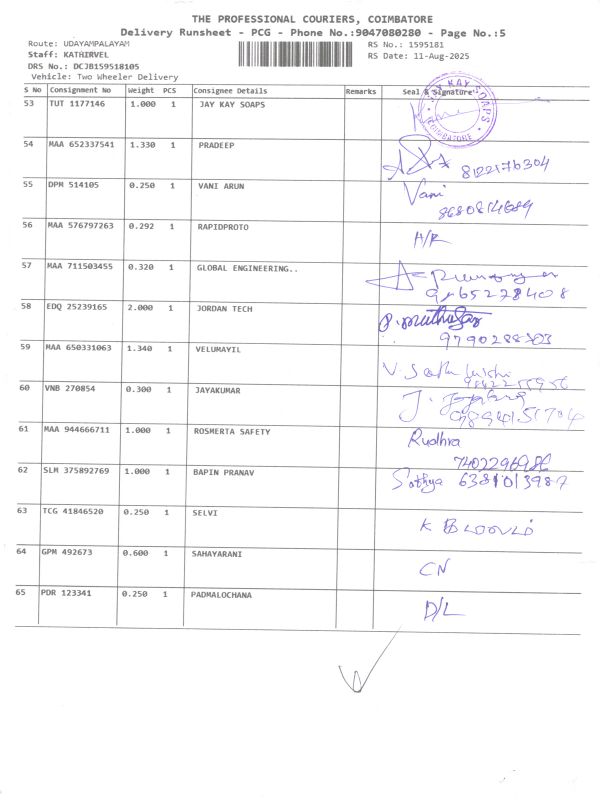 THE PROFESSIONAL COURIERS, COIMBATORE
Delivery Runsheet - PCG - Phone No.:9047080280 - Page No.:5
Route: UDAYAMPALAYAM RS No.: 1595181
Staff: KATHIRVEL RS Date: 11-Aug-2025
DRS No.: DCJB159518105
Vehicle: Two Wheeler Delivery
S No Consignment No Weight PCS Consignee Details Remarks Seal & Signature
53 TUT 1177146 1.000 1 JAY KAY SOAPS
JAY KAY SOAPS
COIMBATORE
54 MAA 652337541 1.330 1 PRADEEP
8122176304
55 DPM 514105 0.250 1 VANI ARUN Vani
56 MAA 576797263 0.292 1 RAPIDPROTO
A/R
57 MAA 711503455 0.320 1 GLOBAL ENGINEERING..
9865278408
58 EDQ 25239165 2.000 1 JORDAN TECH
59 MAA 650331063 1.340 1 VELUMAYIL
60 VNB 270854 0.300 1 JAYAKUMAR
61 MAA 944666711 1.000 1 ROSMERTA SAFETY Rudhra
62 SLM 375892769 1.000 1 BAPIN PRANAV Sathya
63 TCG 41846520 0.250 1 SELVI
64 GPM 492673 0.600 1 SAHAYARANI
CN
65 PDR 123341 0.250 1 PADMALOCHANA
D/L